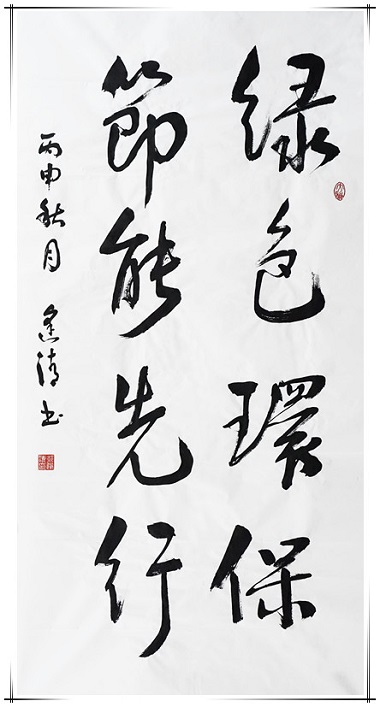 绿色環保
節能先行
丙申秋月 書